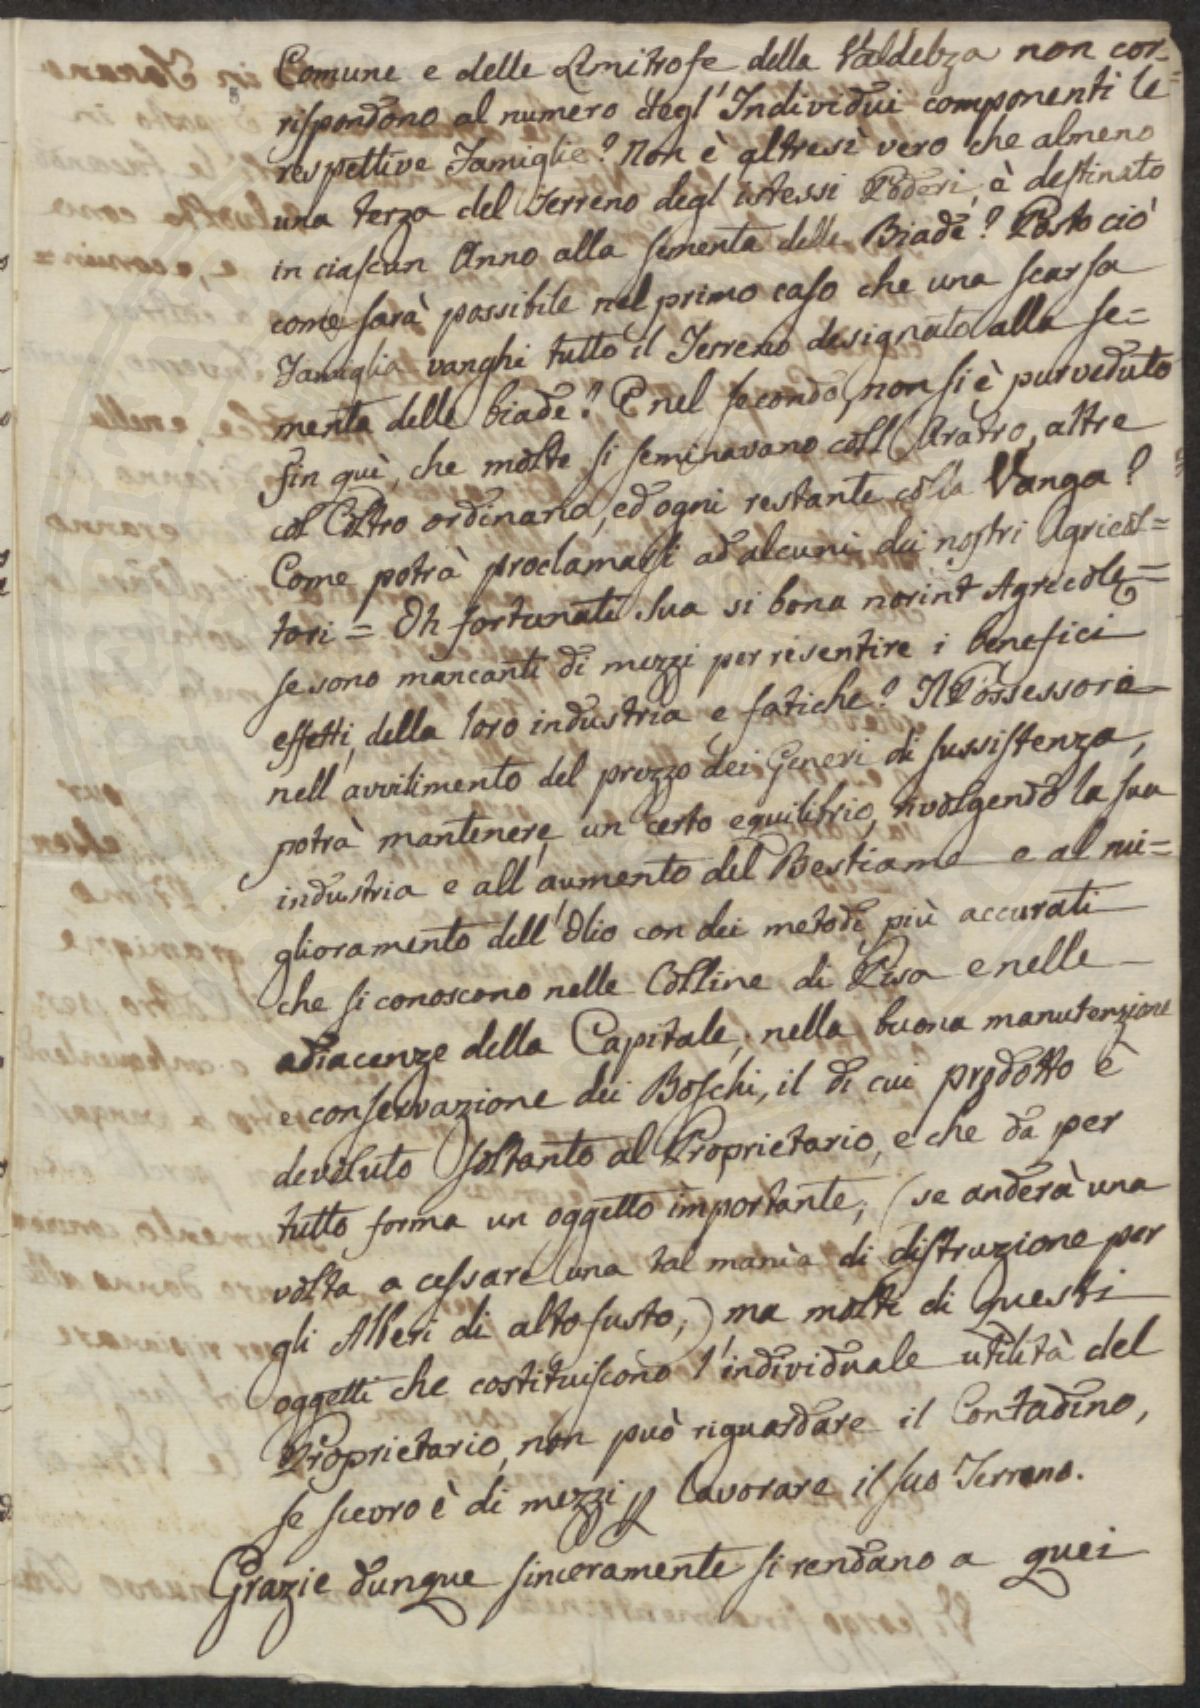 Comune e delle Limitrofe della Valdelza non cor-
rispondono al numero degl'Individui componenti le
respettive Famiglie? Non è altresì vero che almeno
una terza del Terreno degl'istessi Poderi, è destinato
in ciascun Anno alla sementa delle Biade? Posto ciò
come sarà possibile nel primo caso che una scarsa
Famiglia vanghi tutto il Terreno designato alla se=
menta delle biade? E nel secondo, non si è purveduto
fin quì, che molte si seminavano coll'Aratro, altre
col Coltro ordinario, ed ogni restante colla Vanga?
Come potrà proclamarsi ad alcuni dei nostri Agricol=
tori = Oh fortunati sua si bona norint Agricole =
se sono mancanti di mezzi per risentire i benefici
effetti, della loro industria e fatiche? Il Possessore
nell'avvilimento del prezzo dei Generi di sussistenza,
potrà mantenere un certo equilibrio, rivolgendo la sua
industria e all'aumento del Bestiame e al mi=
glioramento dell'Olio con dei metodi più accurati
che si conoscono nelle Colline di Pisa e nelle
adiacenze della Capitale, nella buona manutenzione
e conservazione dei Boschi, il di cui prodotto è
devoluto soltanto al Proprietario, e che da per
tutto forma un oggetto importante, (se anderà una
volta a cessare una tal manìa di distruzione per
gli Alberi di alto fusto;) ma molti di questi
oggetti che costituiscono l'individuale utilità del
Proprietario, non può riguardare il Contadino,
se scevro è di mezzi p lavorare il suo Terreno.
Grazie dunque sinceramente si rendano a quei